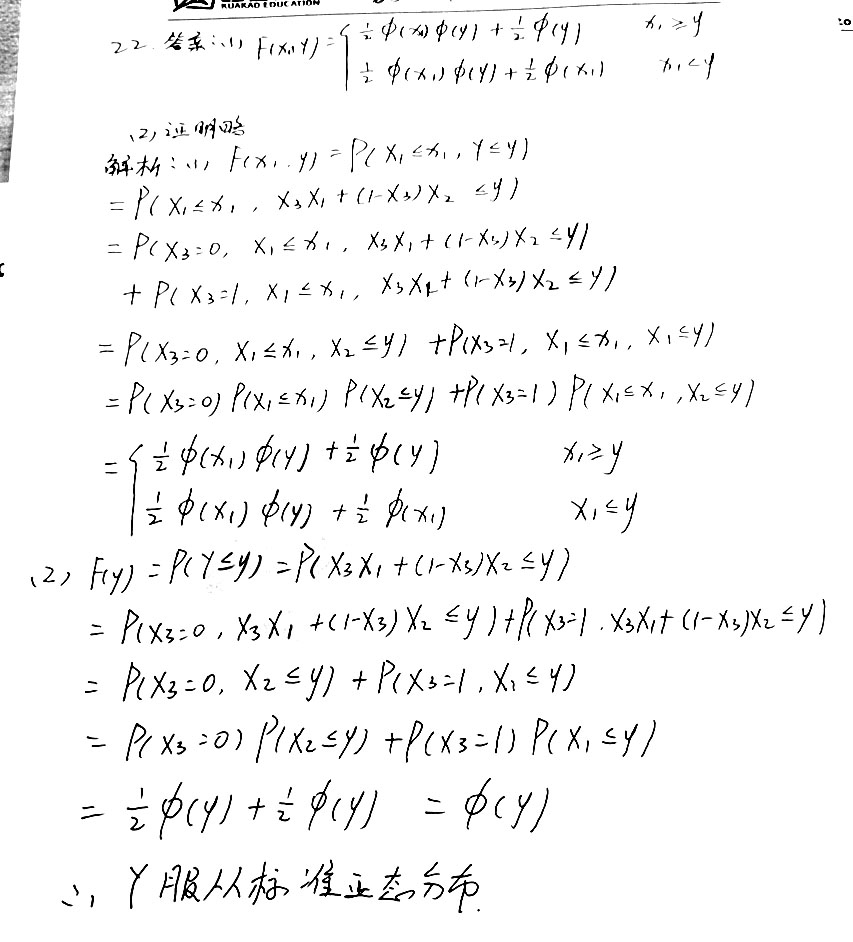 HUAKAO EDUCATION
22. 答案:(1) F(x₁,y)={ ½ϕ(x₁)ϕ(y)+½ϕ(y) x₁≥y
½ϕ(x₁)ϕ(y)+½ϕ(x₁) x₁<y
(2) 证明略
解析:(1) F(x₁,y)=P(X₁≤x₁, Y≤y)
=P(X₁≤x₁, X₃X₁+(1-X₃)X₂≤y)
=P(X₃=0, X₁≤x₁, X₃X₁+(1-X₃)X₂≤y)
+P(X₃=1, X₁≤x₁, X₃X₁+(1-X₃)X₂≤y)
=P(X₃=0, X₁≤x₁, X₂≤y)+P(X₃=1, X₁≤x₁, X₁≤y)
=P(X₃=0)P(X₁≤x₁)P(X₂≤y)+P(X₃=1)P(X₁≤x₁,X₂≤y)
={ ½ϕ(x₁)ϕ(y)+½ϕ(y) x₁≥y
½ϕ(x₁)ϕ(y)+½ϕ(x₁) x₁≤y
(2) F(y)=P(Y≤y)=P(X₃X₁+(1-X₃)X₂≤y)
=P(X₃=0, X₃X₁+(1-X₃)X₂≤y)+P(X₃=1, X₃X₁+(1-X₃)X₂≤y)
=P(X₃=0, X₂≤y)+P(X₃=1, X₁≤y)
=P(X₃=0)P(X₂≤y)+P(X₃=1)P(X₁≤y)
=½ϕ(y)+½ϕ(y) =ϕ(y)
∴ Y服从标准正态分布.